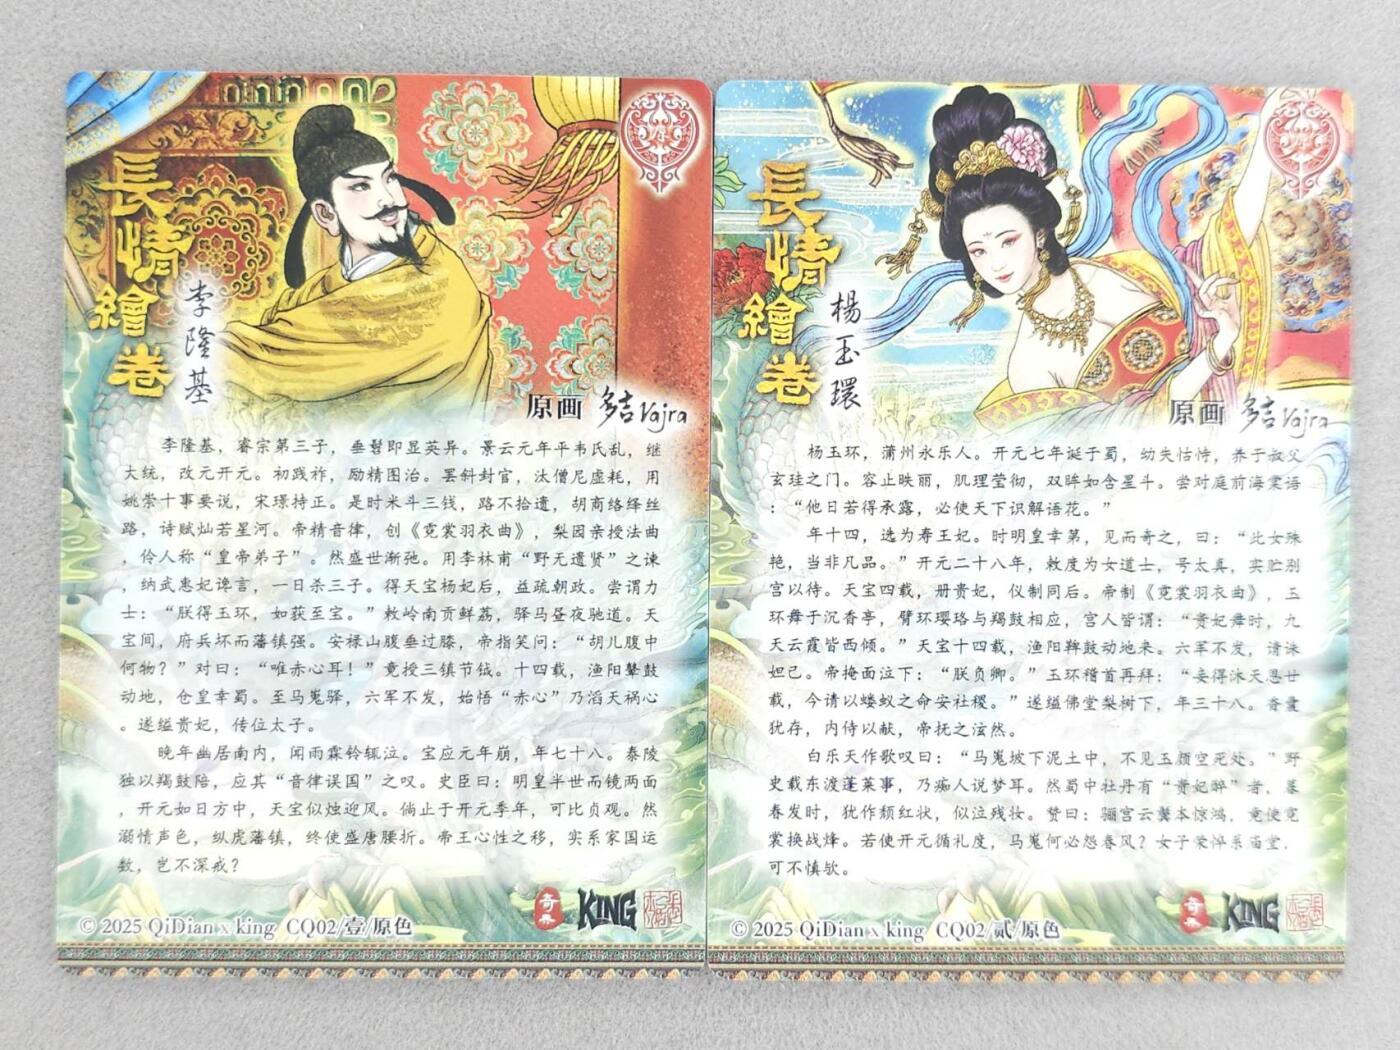 長情繪卷
李隆基
原画 多吉Vajra
李隆基，睿宗第三子，垂髫即显英异。景云元年平韦氏乱，继
大统，改元开元。初践祚，励精图治。罢斜封官，汰僧尼虚耗，用
姚崇十事要说，宋璟持正。是时米斗三钱，路不拾遗，胡商络绎丝
路，诗赋灿若星河。帝精音律，创《霓裳羽衣曲》，梨园亲授法曲
，伶人称“皇帝弟子”。然盛世渐弛。用李林甫“野无遗贤”之谏
，纳武惠妃谗言，一日杀三子。得天宝杨妃后，益疏朝政。尝谓力
士：“朕得玉环，如获至宝。”敕岭南贡鲜荔，驿马昼夜驰道。天
宝间，府兵坏而藩镇强。安禄山腹垂过膝，帝指笑问：“胡儿腹中
何物？”对曰：“唯赤心耳！”竟授三镇节钺。十四载，渔阳鼙鼓
动地，仓皇幸蜀。至马嵬驿，六军不发，始悟“赤心”乃滔天祸心
。遂缢贵妃，传位太子。
晚年幽居南内，闻雨霖铃辄泣。宝应元年崩，年七十八。泰陵
独以羯鼓陪，应其“音律误国”之叹。史臣曰：明皇半世而镜两面
，开元如日方中，天宝似烛迎风。倘止于开元季年，可比贞观。然
溺情声色，纵虎藩镇，终使盛唐腰折。帝王心性之移，实系家国运
数，岂不深戒？
奇典 KING
© 2025 QiDian x king CQ02/壹/原色
長情繪卷
楊玉環
原画 多吉Vajra
杨玉环，蒲州永乐人。开元七年诞于蜀，幼失怙恃，养于叔父
玄珪之门。容止昳丽，肌理莹彻，双眸如含星斗。尝对庭前海棠语
：“他日若得承露，必使天下识解语花。”
年十四，选为寿王妃。时明皇幸第，见而奇之，曰：“此女殊
艳，当非凡品。”开元二十八年，敕度为女道士，号太真，实贮别
宫以待。天宝四载，册贵妃，仪制同后。帝制《霓裳羽衣曲》，玉
环舞于沉香亭，臂环璎珞与羯鼓相应，宫人皆谓：“贵妃舞时，九
天云霞皆西倾。”天宝十四载，渔阳鞞鼓动地来。六军不发，请诛
妲己。帝掩面泣下：“朕负卿。”玉环稽首再拜：“妾得沐天恩廿
载，今请以蝼蚁之命安社稷。”遂缢佛堂梨树下，年三十八。香囊
犹存，内侍以献，帝抚之泫然。
白乐天作歌叹曰：“马嵬坡下泥土中，不见玉颜空死处。”野
史载东渡蓬莱事，乃痴人说梦耳。然蜀中牡丹有“贵妃醉”者，暮
春发时，犹作颓红状，似泣残妆。赞曰：骊宫云鬓本惊鸿，竟使霓
裳换战烽。若使开元循礼度，马嵬何必怨春风？女子荣悴系庙堂，
可不慎欤。
奇典 KING
© 2025 QiDian x king CQ02/贰/原色